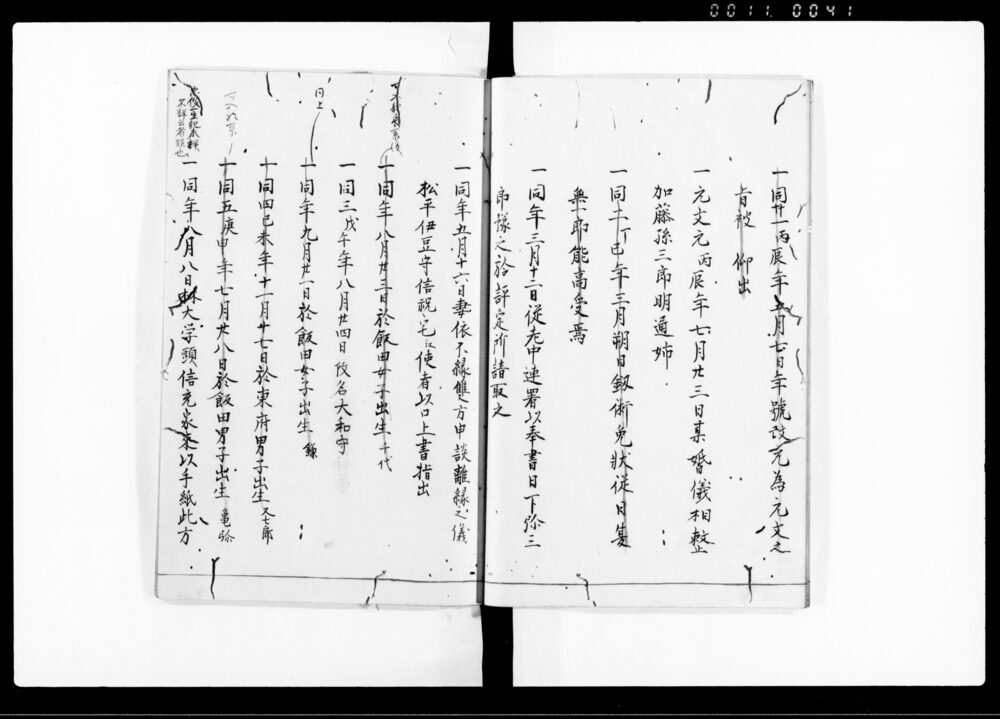 0011 0041
一同廿一丙辰年五月七日年號改元為元文之
旨被 仰出
一元文元丙辰年七月廿三日某婚儀相整
加藤孫三郎明通姉
一同二丁巳年三月朔日釼術免状従日夏
無一郎能高受焉
一同年三月十二日従老中連署以奉書日下弥三
郎様之於評定所請取之
一同年五月十六日妻依不縁雙方申談離縁之儀
松平伊豆守信祝宅江使者以口上書指出
一同年八月廿三日於飯田女子出生 千代
一同三戊午年八月廿四日改名大和守
一同年九月廿一日於飯田女子出生 鎌
一同四己未年十一月廿七日於東府男子出生 又七郎
一同五庚申年七月廿八日於飯田男子出生 亀弥
一同年八月八日林大学頭信充家来以手紙此方
同上